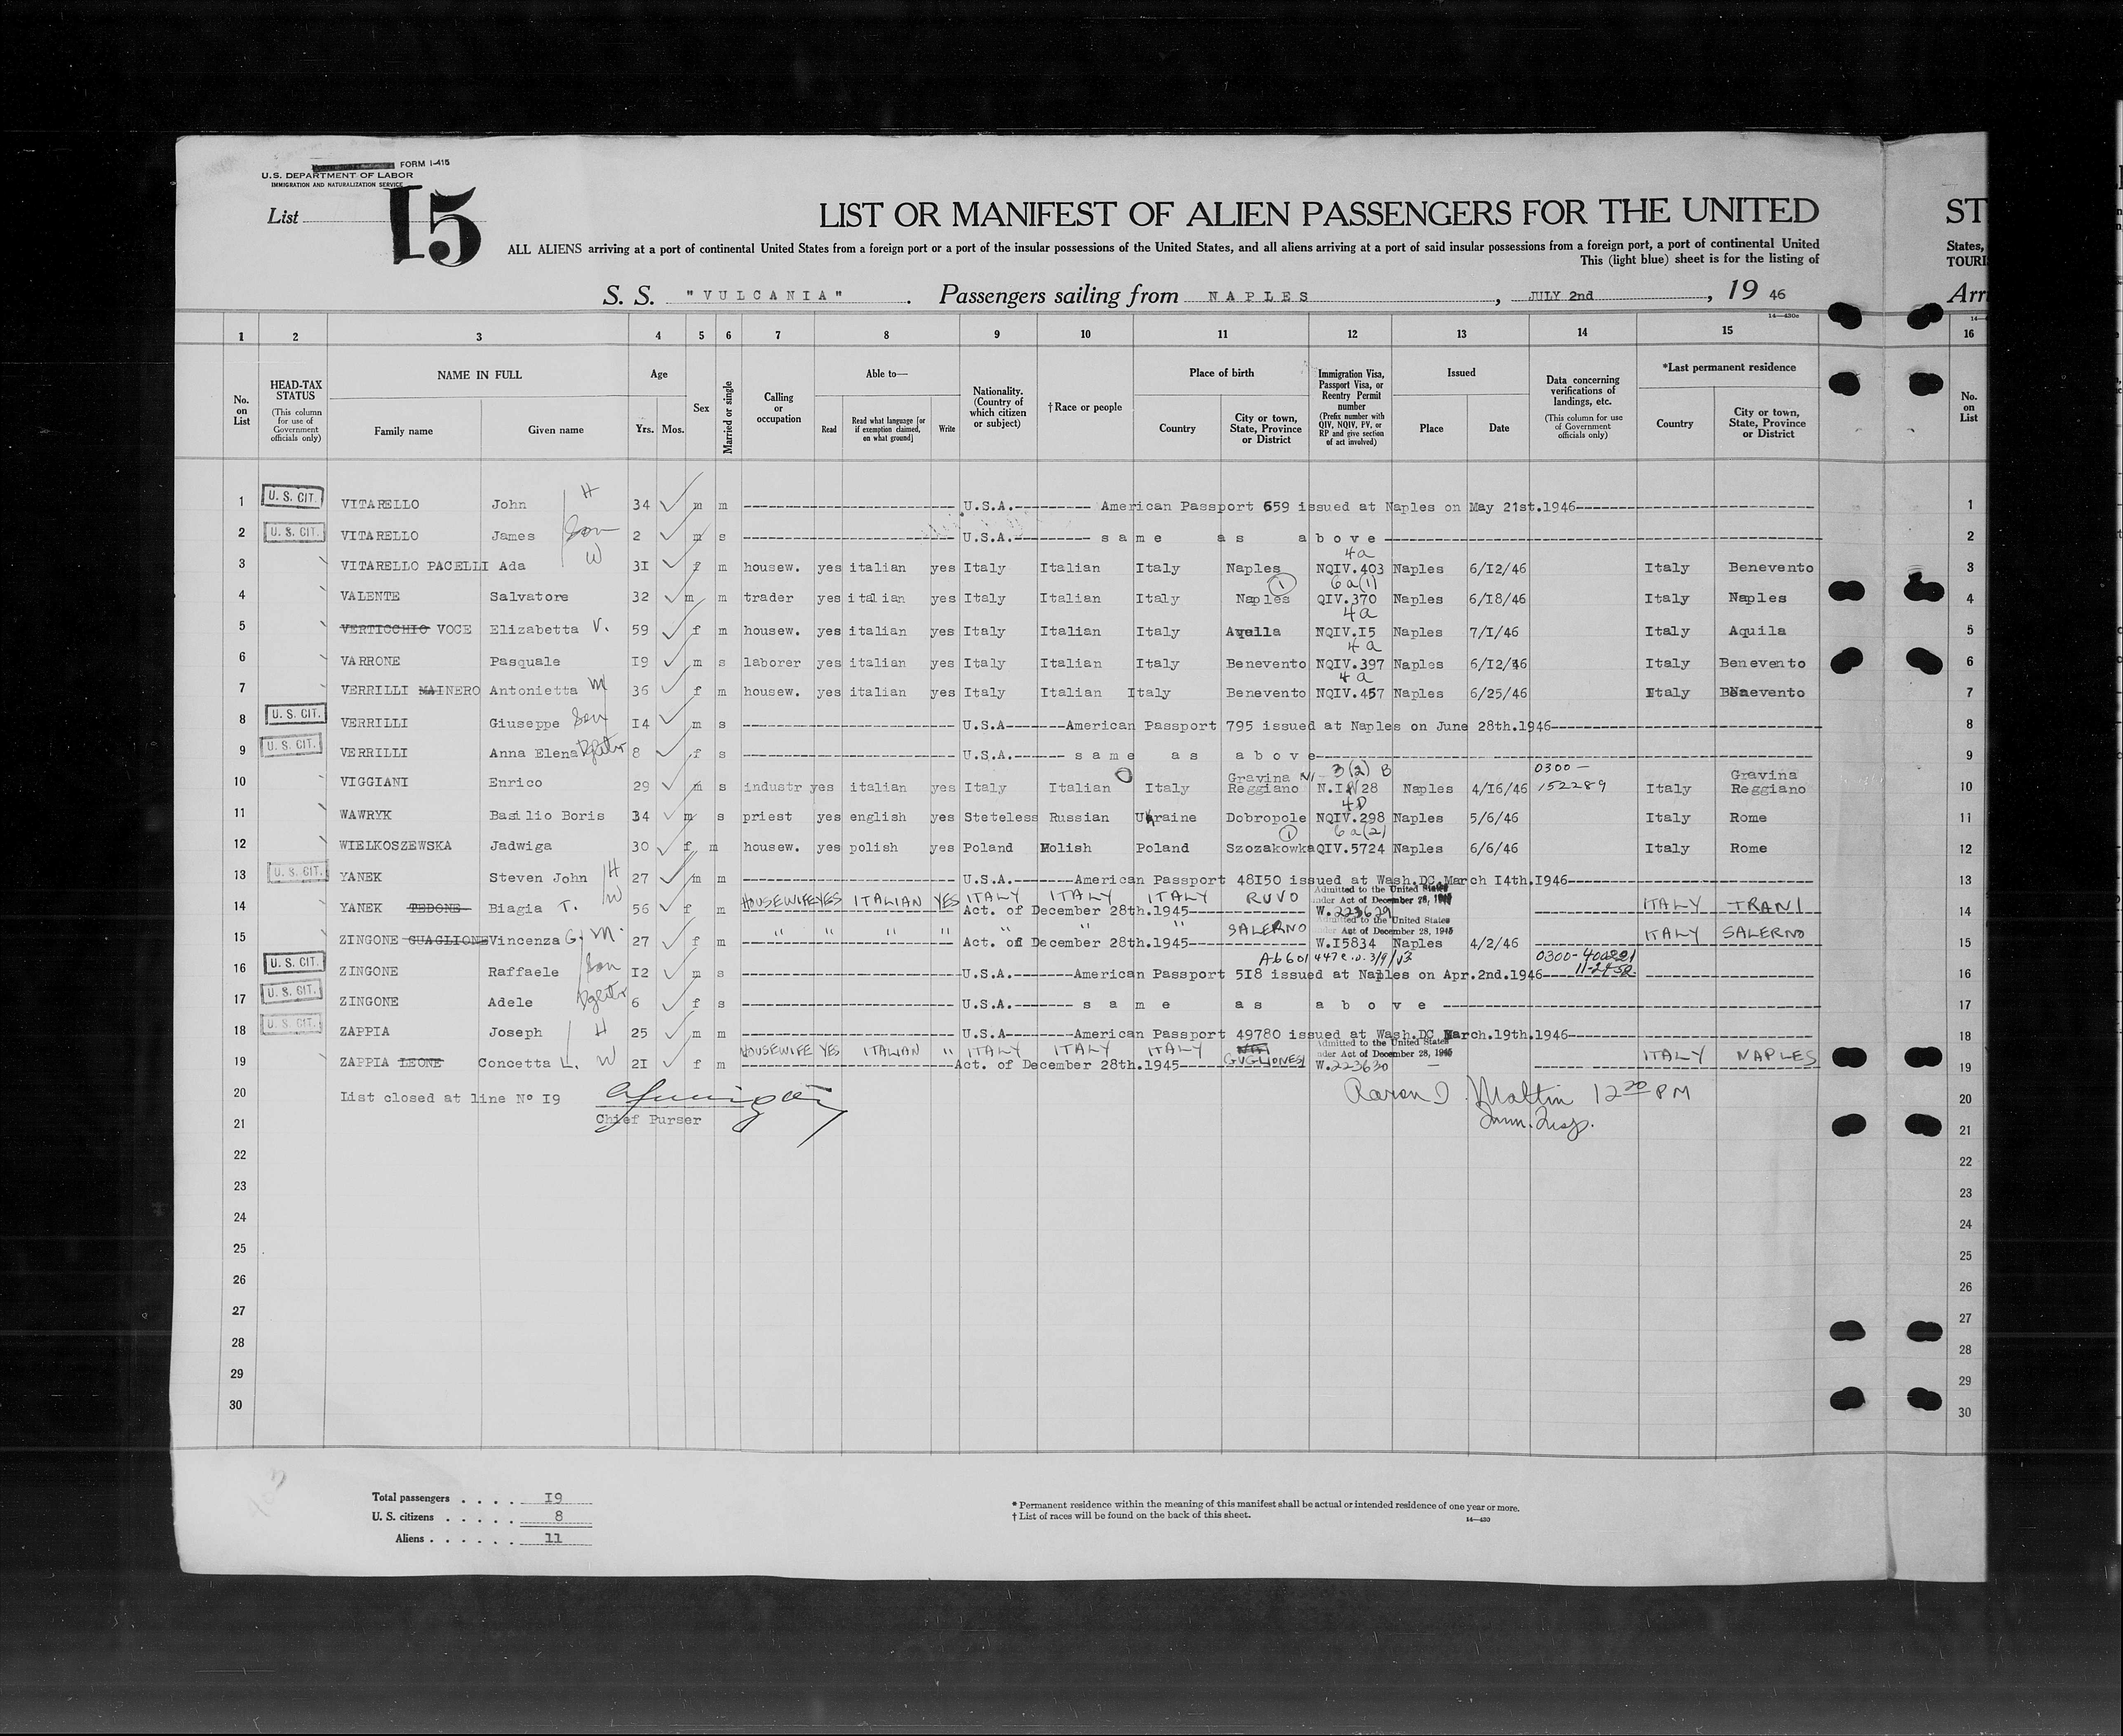 FORM I-415
U.S. DEPARTMENT OF LABOR
IMMIGRATION AND NATURALIZATION SERVICE
List 15
LIST OR MANIFEST OF ALIEN PASSENGERS FOR THE UNITED ST
ALL ALIENS arriving at a port of continental United States from a foreign port or a port of the insular possessions of the United States, and all aliens arriving at a port of said insular possessions from a foreign port, a port of continental United States,
This (light blue) sheet is for the listing of TOURI
S. S. "VULCANIA". Passengers sailing from NAPLES, JULY 2nd, 19 46 Arri
14—430c
1 2 3 4 5 6 7 8 9 10 11 12 13 14 15 16
No. on List
HEAD-TAX STATUS (This column for use of Government officials only)
NAME IN FULL Family name Given name
Age Yrs. Mos.
Sex
Married or single
Calling or occupation
Able to— Read Read what language [or if exemption claimed, on what ground] Write
Nationality. (Country of which citizen or subject)
†Race or people
Place of birth Country City or town, State, Province or District
Immigration Visa, Passport Visa, or Reentry Permit number (Prefix number with QIV, NQIV, PV, or RP and give section of act involved)
Issued Place Date
Data concerning verifications of landings, etc. (This column for use of Government officials only)
*Last permanent residence Country City or town, State, Province or District
No. on List
1 U. S. CIT. VITARELLO John H 34 m m U.S.A. American Passport 659 issued at Naples on May 21st.1946 1
2 U. S. CIT. VITARELLO James Son 2 m s U.S.A. same as above 2
4a
3 VITARELLO PACELLI Ada W 31 f m housew. yes italian yes Italy Italian Italy Naples NQIV.403 Naples 6/12/46 Italy Benevento 3
1 6a(1)
4 VALENTE Salvatore 32 m m trader yes italian yes Italy Italian Italy Naples QIV.370 Naples 6/18/46 Italy Naples 4
4a
5 VERTICCHIO VOCE Elizabetta V. 59 f m housew. yes italian yes Italy Italian Italy Aquila NQIV.I5 Naples 7/1/46 Italy Aquila 5
4a
6 VARRONE Pasquale I9 m s laborer yes italian yes Italy Italian Italy Benevento NQIV.397 Naples 6/12/46 Italy Benevento 6
4a
7 VERRILLI MAINERO Antonietta M 36 f m housew. yes italian yes Italy Italian Italy Benevento NQIV.457 Naples 6/25/46 Italy Benevento 7
8 U. S. CIT. VERRILLI Giuseppe Son I4 m s U.S.A American Passport 795 issued at Naples on June 28th.1946 8
9 U. S. CIT. VERRILLI Anna Elena 8 f s U.S.A. same as above 9
3(2) B 0300 —
10 VIGGIANI Enrico 29 m s industr yes italian yes Italy Italian Italy Gravina Reggiano 28 Naples 4/16/46 152289 Italy Gravina Reggiano 10
4D
11 WAWRYK Basilio Boris 34 m s priest yes english yes Steteless Russian Ukraine Dobropole NQIV.298 Naples 5/6/46 Italy Rome 11
1 6a(2)
12 WIELKOSZEWSKA Jadwiga 30 f m housew. yes polish yes Poland Polish Poland Szozakowka QIV.5724 Naples 6/6/46 Italy Rome 12
13 U. S. CIT. YANEK Steven John H 27 m m U.S.A. American Passport 48I50 issued at Wash.DC March I4th.I946 13
HOUSEWIFE YES ITALIAN YES ITALY ITALY ITALY RUVO Admitted to the United States under Act of December 28, 1945 ITALY TRANI
14 YANEK TEDONE Biagia T. W 56 f m Act. of December 28th.1945 W.223629 14
" " " " " " " SALERNO Admitted to the United States under Act of December 28, 1945 ITALY SALERNO
15 ZINGONE GUAGLIONE Vincenza G. M. 27 f m Act. of December 28th.1945 W.I5834 Naples 4/2/46 15
0300-
16 U. S. CIT. ZINGONE Raffaele Son I2 m s U.S.A. American Passport 5I8 issued at Naples on Apr.2nd.1946 16
17 U. S. CIT. ZINGONE Adele 6 f s U.S.A. same as above 17
18 U. S. CIT. ZAPPIA Joseph H 25 m m U.S.A American Passport 49780 issued at Wash.DC March.19th.1946 18
HOUSEWIFE YES ITALIAN " ITALY ITALY ITALY GUGLIONESI Admitted to the United States under Act of December 28, 1945 ITALY NAPLES
19 ZAPPIA LEONE Concetta L. W 2I f m Act. of December 28th.1945 W.223630 19
20 List closed at line Nº I9 Aaron Maltin 12 20 PM 20
21 Chief Purser Imm. Insp. 21
22 22
23 23
24 24
25 25
26 26
27 27
28 28
29 29
30 30
Total passengers . . . . I9
U. S. citizens . . . . . 8
Aliens . . . . . . 11
* Permanent residence within the meaning of this manifest shall be actual or intended residence of one year or more.
† List of races will be found on the back of this sheet.
14—430